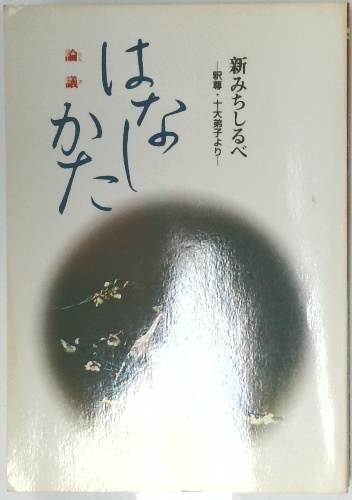 新みちしるべ
―釈尊・十大弟子より―
はなし
かた
論議
ろんぎ